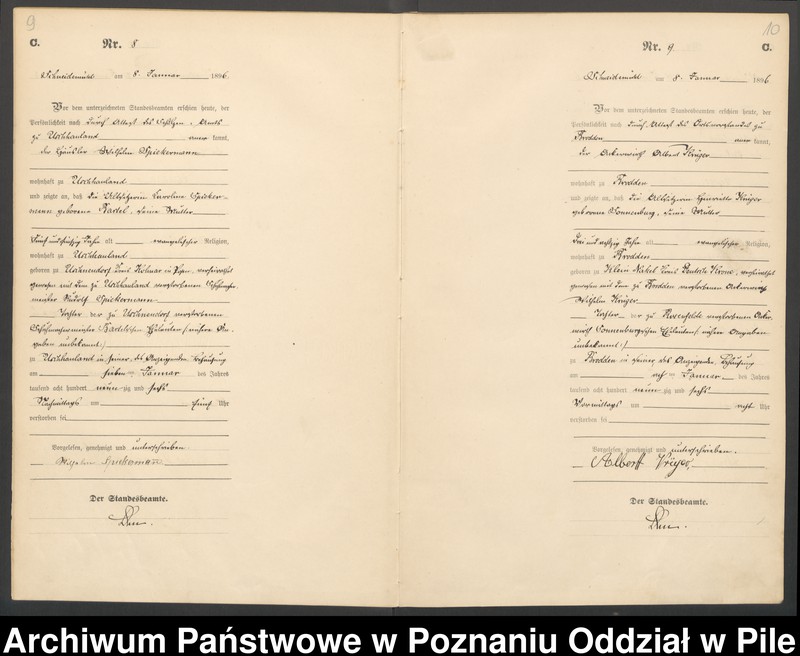 9
C.
Nr. 8
Schneidemühl am 8. Januar 1896
Vor dem unterzeichneten Standesbeamten erschien heute, der
Persönlichkeit nach durch Attest des
zu Uschhauland kannt,
der Häusler Wilhelm Spickermann
wohnhaft zu Uschhauland
und zeigte an, daß die Altsitzerin Karoline Spicker-
mann geborene Radel, seine Mutter
fünf und Jahre alt evangelischer Religion,
wohnhaft zu Uschhauland
geboren zu Kreis Kolmar in Posen, verheirathet
gewesen mit dem zu Uschhauland verstorbenen
Rudolf Spickermann
Tochter der zu verstorbenen
Eheleute (nähere An-
gaben unbekannt)
zu Uschhauland in seiner, des Anzeigenden Behausung
am sieben Januar des Jahres
tausend acht hundert neunzig und sechs
Nachmittags um fünf Uhr
verstorben sei
Vorgelesen, genehmigt und unterschrieben
Wilhelm Spickermann
Der Standesbeamte.
10
Nr. 9
C.
Schneidemühl am 8. Januar 1896
Vor dem unterzeichneten Standesbeamten erschien heute, der
Persönlichkeit nach durch Attest des Ortsvorstandes zu
Brodden kannt,
der Ackerwirth Albert Krüger
wohnhaft zu Brodden
und zeigte an, daß die Altsitzerin Henriette Krüger
geborene Sonnenburg, seine Mutter
drei und Jahre alt evangelischer Religion,
wohnhaft zu Brodden
geboren zu Klein Nakel Kreis Deutsch Krone, verheirathet
gewesen mit dem zu Brodden verstorbenen Ackerwirth
Wilhelm Krüger
Tochter der zu Rosenfelde verstorbenen Acker-
wirth Sonnenburgschen Eheleute (nähere Angaben
unbekannt)
zu Brodden in seiner des Anzeigenden Behausung
am acht Januar des Jahres
tausend acht hundert neunzig und sechs
Vormittags um acht Uhr
verstorben sei
Vorgelesen, genehmigt und unterschrieben.
Albert Krüger
Der Standesbeamte.
Archiwum Państwowe w Poznaniu Oddział w Pile